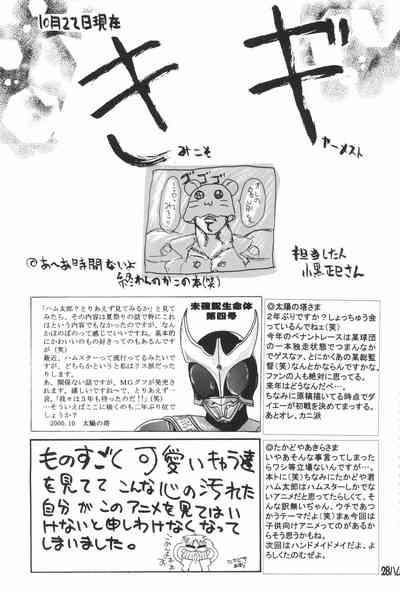 10月22日現在
きギ
みこそ
ヤーメスト
ゴゴゴゴ
担当したん
小黒正巳さん
あ〜あ時間ないよ
終わんのかこの本(笑)
「ハム太郎？とりあえず見てみるか」と見て
みたら、その内容は夏祭りの話で特にこれ
はという内容でもなかったのですが、なん
かほのぼのって感じでいいよねぇ。基本的
にかわいいのもの好きってのもあるんです
が(笑)
最近、ハムスターって流行ってるみたいで
すが、どちらかというと私はリス派だった
りします。
あ、関係ない話ですが、ＭＧグフが発売さ
れます。嬉しいですね〜で、とりあえず一
言。「我々は３年も待ったのだ!!」(笑)
…そういえばここに描くのも二年ぶり症で
しょうか？
2000.10　太陽の塔
未確認生命体
第四号
◎太陽の塔さま
２年ぶりですか？しょっちゅう会
っているんでねェ(笑)
今年のペナントレースは某球団
の一本独走状態でつまんなか
でゲスなァ、とにかくあの某御監
督(笑)なんとかならんですかな。
ファンの人も絶対に思ってる。
来年はどうなんだべ…。
ちなみに原稿描いてる時点でダ
イエーが初戦を決めてまっする。
あとオレ、カニ派
ものすごく可愛いキャラ達
を見ててこんな心の汚れた
自分がこのアニメを見てはい
けないと申しわけなくなって
しまいました。
◎たかどやあきらさま
いやあそんな事言ってしまった
らワシ等立場ないんですが…。
本トに(笑)ちなみにたかどや君
ハム太郎はハムスターしかでな
いアニメだと思ってたらしくて、そ
んな訳無いぢゃん、ウチであつ
かうテーマだよ(笑)まぁ今回は
子供向けアニメってのがあるか
らそう思うかもね。
次回はハンドメイドメイだよ、よ
ろしくたのむぜよ。